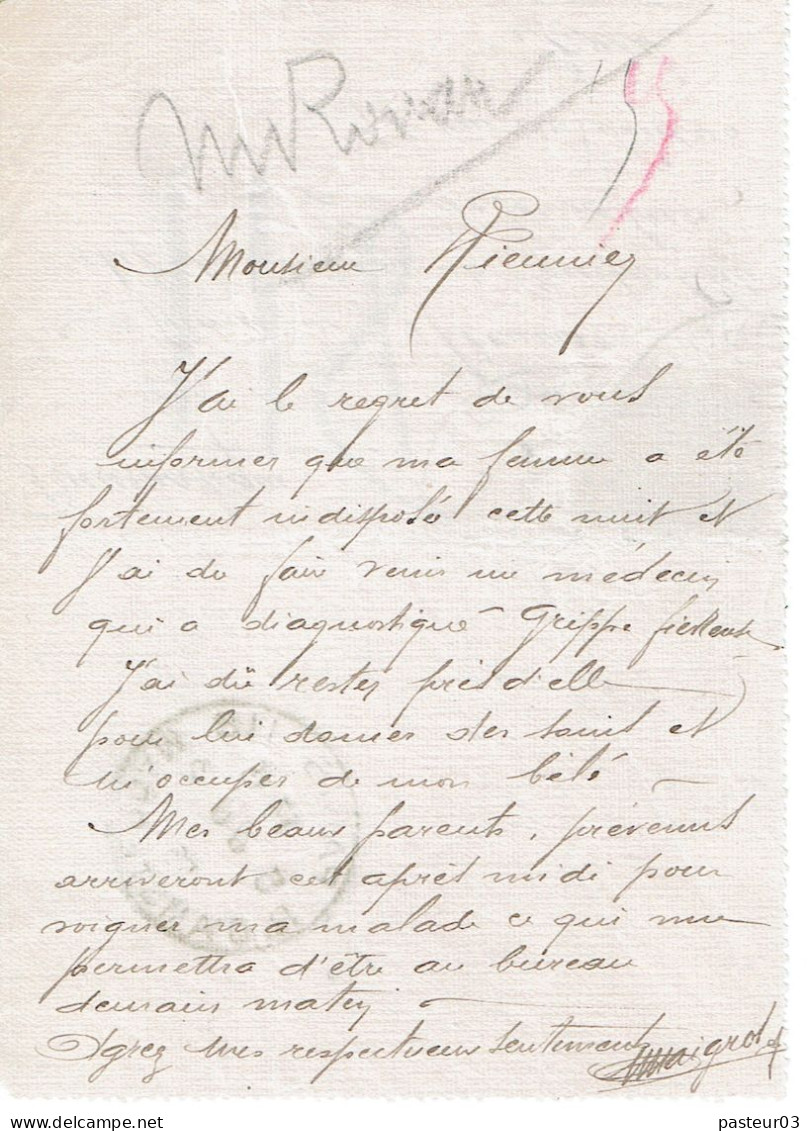 Monsieur
J'ai le regret de vous
informer que ma femme a été
fortement indisposée cette nuit et
J'ai du faire venir un médecin
qui a diagnostiqué Grippe
J'ai dû rester près d'elle
pour lui donner des soins et
m'occuper de mon bébé
Mes beaux parents, prévenus
arriveront cet après midi pour
soigner ma malade ce qui me
permettra d'être au bureau
demain matin
Agrez mes respectueux sentiments
www.delcampe.net
pasteur03